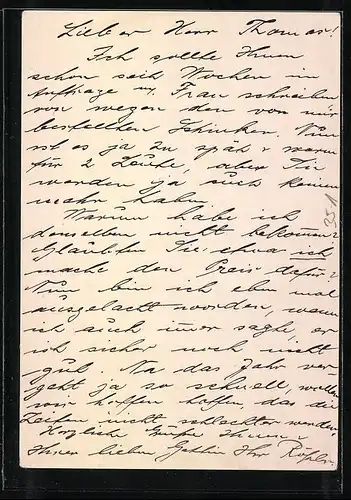 Lieber Herr Thomas!
Ich sollte Ihnen
schon seit Wochen im
Auftrage m. Frau schreiben
von wegen den von mir
bestellten Schinken. Nun
ist es ja zu spät & warm
für 2 Leute, aber Sie
werden ja auch keinen
mehr haben.
Warum habe ich
denselben nicht bekommen?
Glaubten Sie etwa ich
mache den Preis dafür?
Nun bin ich eben mal
ausgelacht worden, wenn
ich auch immer sagte, er
sicher noch nicht
gut. Na das Jahr ver-
geht ja so schnell, wollen
wir hoffen hoffen, das die
Zeiten nicht schlechter werden
Herzliche Grüße Ihnen &
Ihrer lieben Gattin Ihr
351